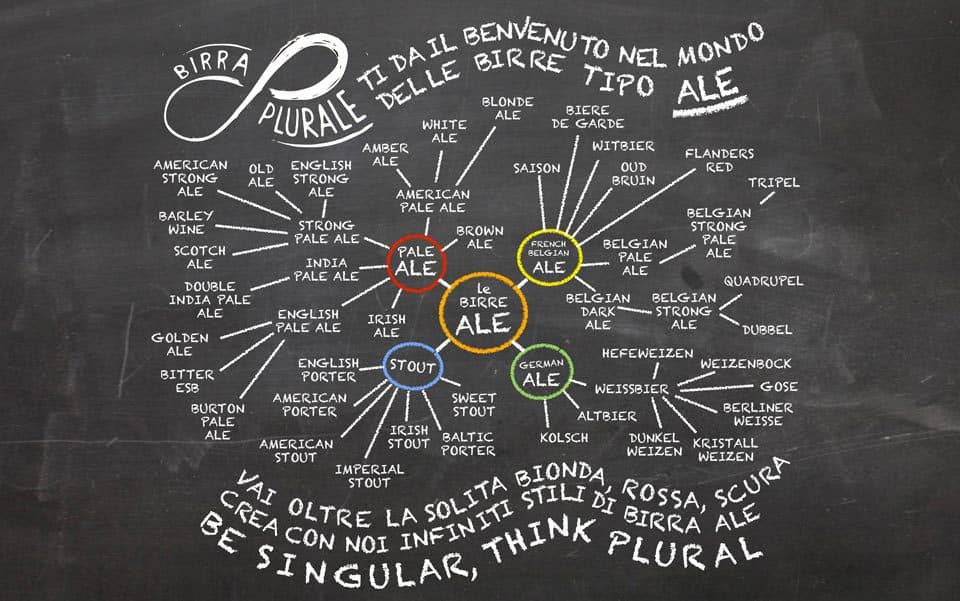 BIRRA
PLURALE
TI DA IL BENVENUTO NEL MONDO
DELLE BIRRE TIPO ALE
le
BIRRE
ALE
PALE
ALE
AMERICAN
PALE ALE
AMBER
ALE
WHITE
ALE
BLONDE
ALE
BROWN
ALE
STRONG
PALE ALE
AMERICAN
STRONG
ALE
OLD
ALE
ENGLISH
STRONG
ALE
BARLEY
WINE
SCOTCH
ALE
INDIA
PALE ALE
DOUBLE
INDIA PALE
ALE
ENGLISH
PALE ALE
GOLDEN
ALE
BITTER
ESB
BURTON
PALE
ALE
IRISH
ALE
FRENCH
BELGIAN
ALE
SAISON
BIERE
DE GARDE
WITBIER
OUD
BRUIN
FLANDERS
RED
BELGIAN
PALE
ALE
BELGIAN
STRONG
PALE
ALE
TRIPEL
BELGIAN
DARK
ALE
BELGIAN
STRONG
ALE
QUADRUPEL
DUBBEL
STOUT
ENGLISH
PORTER
AMERICAN
PORTER
AMERICAN
STOUT
IMPERIAL
STOUT
IRISH
STOUT
BALTIC
PORTER
SWEET
STOUT
GERMAN
ALE
KOLSCH
ALTBIER
WEISSBIER
HEFEWEIZEN
WEIZENBOCK
GOSE
BERLINER
WEISSE
KRISTALL
WEIZEN
DUNKEL
WEIZEN
VAI OLTRE LA SOLITA BIONDA, ROSSA, SCURA
CREA CON NOI INFINITI STILI DI BIRRA ALE
BE SINGULAR, THINK PLURAL